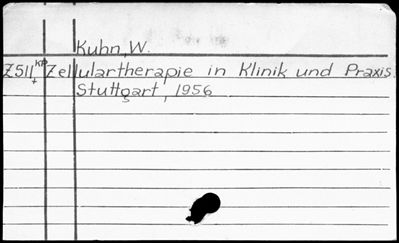 Kuhn, W.
Z511 KP Zellulartherapie in Klinik und Praxis.
Stuttgart, 1956